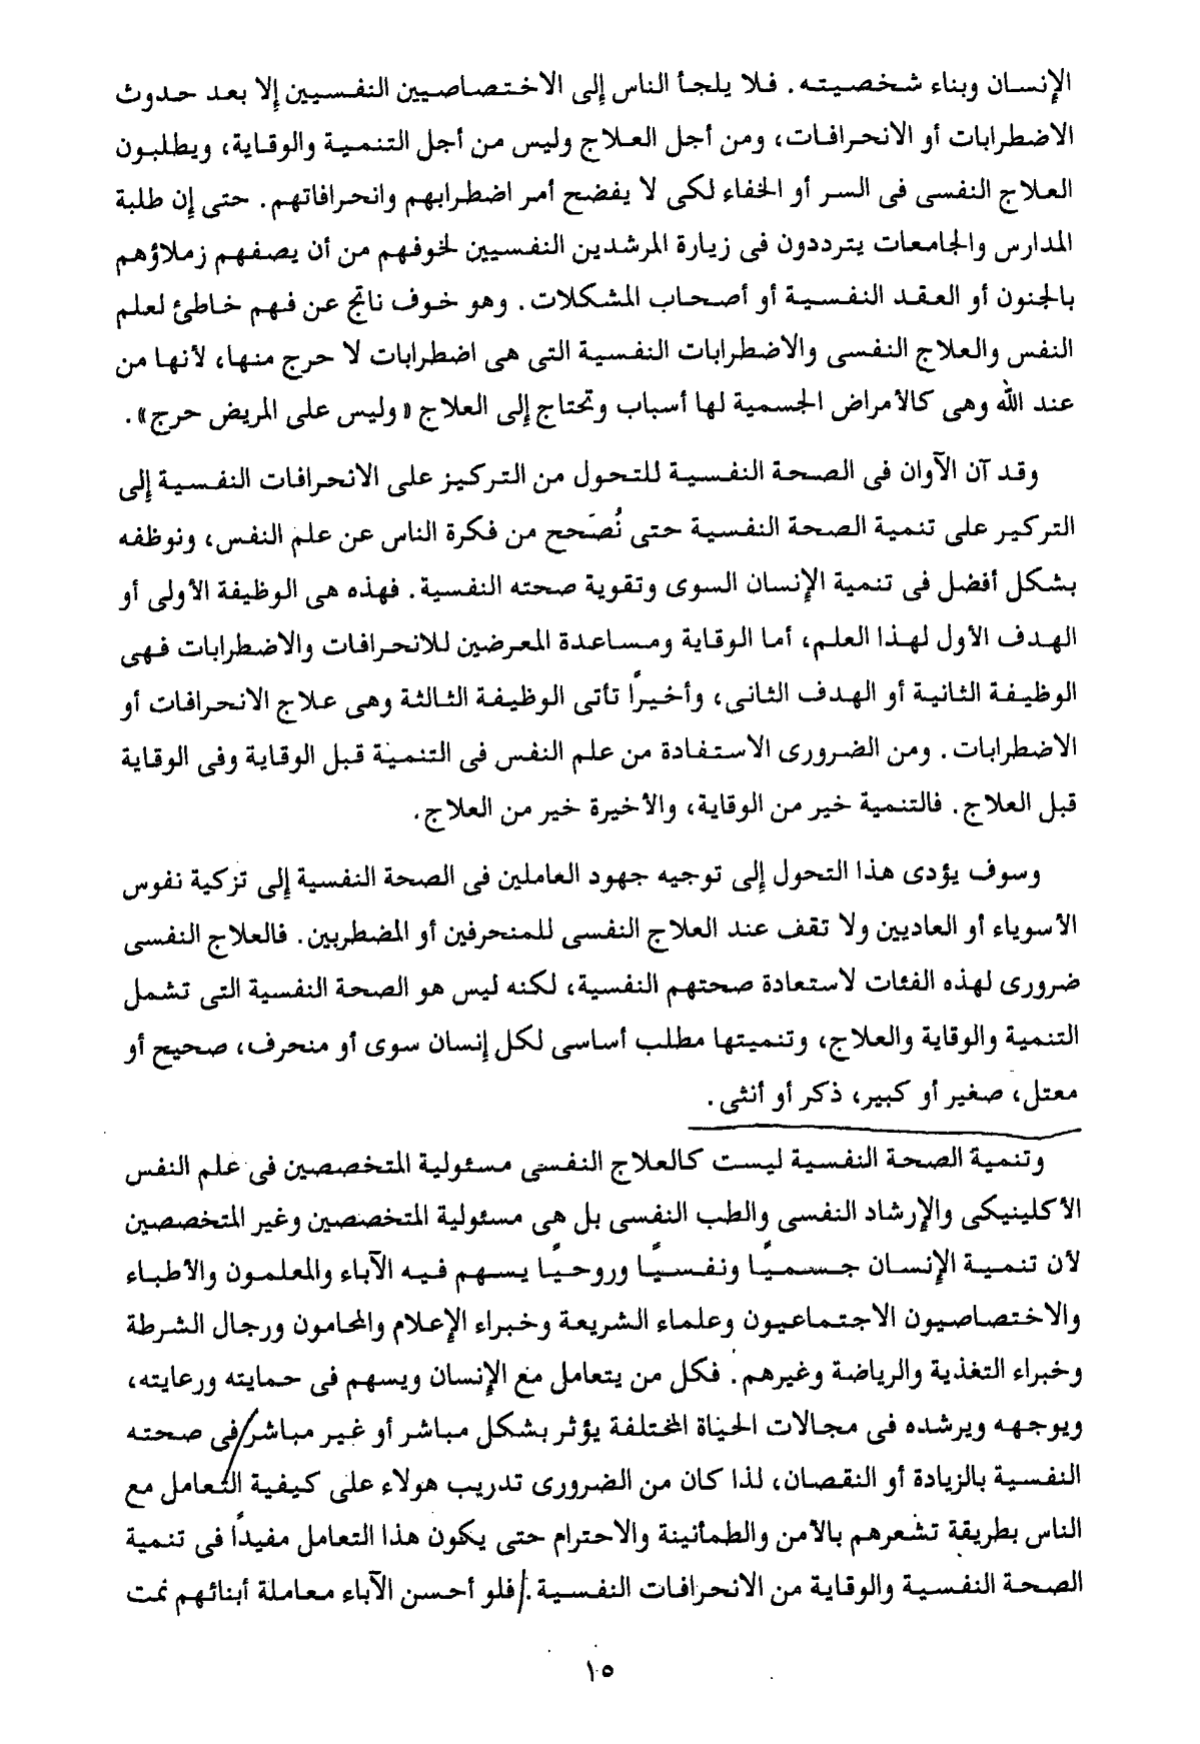 الإنسان وبناء شخصيته. فلا يلجأ الناس إلى الاختصاصيين النفسيين إلا بعد حدوث
الاضطرابات أو الانحرافات، ومن أجل العلاج وليس من أجل التنمية والوقاية، ويطلبون
العلاج النفسى فى السر أو الخفاء لكى لا يفضح أمر اضطرابهم وانحرافاتهم. حتى إن طلبة
المدارس والجامعات يترددون فى زيارة المرشدين النفسيين لخوفهم من أن يصفهم زملاؤهم
بالجنون أو العقد النفسية أو أصحاب المشكلات. وهو خوف ناتج عن فهم خاطئ لعلم
النفس والعلاج النفسى والاضطرابات النفسية التى هى اضطرابات لا حرج منها، لأنها من
عند الله وهى كالأمراض الجسمية لها أسباب وتحتاج إلى العلاج «وليس على المريض حرج».
وقد آن الآوان فى الصحة النفسية للتحول من التركيز على الانحرافات النفسية إلى
التركير على تنمية الصحة النفسية حتى نُصَحح من فكرة الناس عن علم النفس، ونوظفه
بشكل أفضل فى تنمية الإنسان السوى وتقوية صحته النفسية. فهذه هى الوظيفة الأولى أو
الهدف الأول لهذا العلم، أما الوقاية ومساعدة المعرضين للانحرافات والاضطرابات فهى
الوظيفة الثانية أو الهدف الثانى، وأخيرًا تأتى الوظيفة الثالثة وهى علاج الانحرافات أو
الاضطرابات. ومن الضرورى الاستفادة من علم النفس فى التنمية قبل الوقاية وفى الوقاية
قبل العلاج. فالتنمية خير من الوقاية، والأخيرة خير من العلاج.
وسوف يؤدى هذا التحول إلى توجيه جهود العاملين فى الصحة النفسية إلى تزكية نفوس
الأسوياء أو العاديين ولا تقف عند العلاج النفسى للمنحرفين أو المضطربين. فالعلاج النفسى
ضرورى لهذه الفئات لاستعادة صحتهم النفسية، لكنه ليس هو الصحة النفسية التى تشمل
التنمية والوقاية والعلاج، وتنميتها مطلب أساسى لكل إنسان سوى أو منحرف، صحيح أو
معتل، صغير أو كبير، ذكر أو أنثى.
وتنمية الصحة النفسية ليست كالعلاج النفسى مسئولية المتخصصين فى علم النفس
الأكلينيكى والإرشاد النفسى والطب النفسى بل هى مسئولية المتخصصين وغير المتخصصين
لأن تنمية الإنسان جسميًا ونفسيًا وروحيًا يسهم فيه الآباء والمعلمون والأطباء
والاختصاصيون الاجتماعيون وعلماء الشريعة وخبراء الإعلام والمحامون ورجال الشرطة
وخبراء التغذية والرياضة وغيرهم. فكل من يتعامل مع الإنسان ويسهم فى حمايته ورعايته،
ويوجهه ويرشده فى مجالات الحياة المختلفة يؤثر بشكل مباشر أو غير مباشر فى صحته
النفسية بالزيادة أو النقصان، لذا كان من الضرورى تدريب هولاء على كيفية التعامل مع
الناس بطريقة تشعرهم بالأمن والطمأنينة والاحترام حتى يكون هذا التعامل مفيدًا فى تنمية
الصحة النفسية والوقاية من الانحرافات النفسية. فلو أحسن الآباء معاملة أبنائهم نمت
١٥